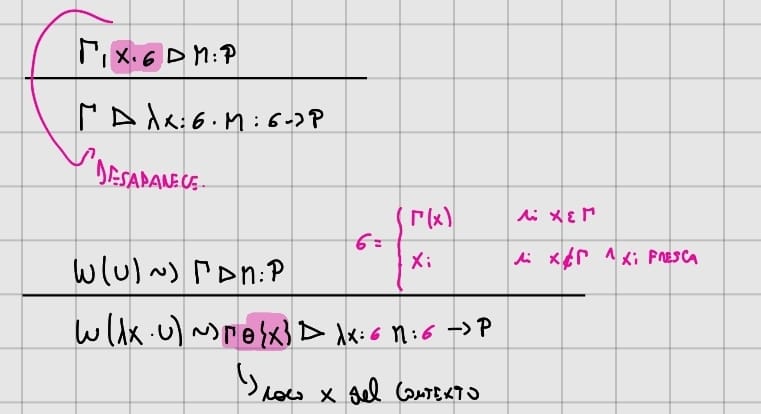 Γ, x:σ ▷ M:ρ
Γ ▷ λx:σ.M : σ→ρ
DESAPARECE.
σ = { Γ(x) si x ∈ Γ
Xi si x ∉ Γ ∧ Xi FRESCA
W(U) ⇝ Γ ▷ M:ρ
W(λx.U) ⇝ Γ⊖{x} ▷ λx:σ M:σ→ρ
↳ saco x del CONTEXTO